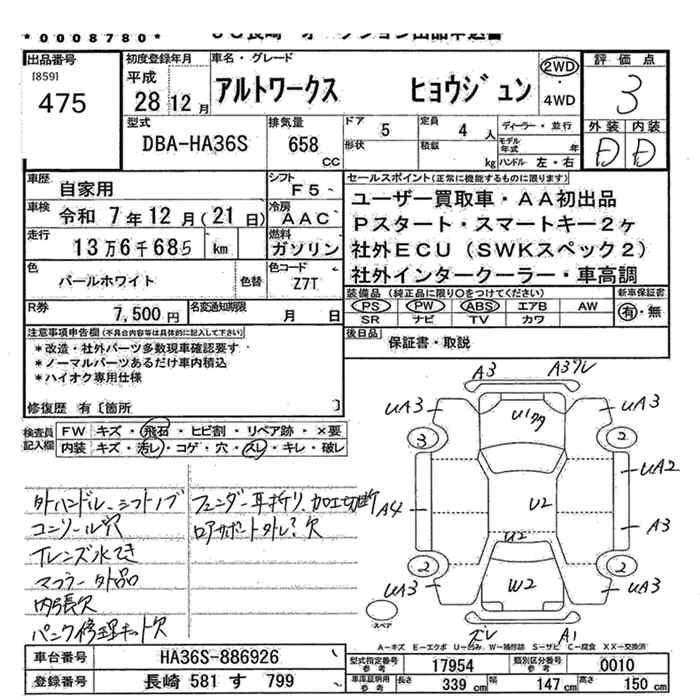 *0008780*
出品番号
[859]
475
初度登録年月
平成
28 12月
車名・グレード
アルトワークス ヒョウジュン
2WD
4WD
評価点
3
型式
DBA-HA36S
排気量
658
CC
ドア
5
形状
定員
4 人
積載
kg
ディーラー・並行
モデル年式 年
ハンドル 左・右
外装 内装
D D
車歴
自家用
シフト
F5
車検
令和 7年 12月(21日)
冷房
AAC
走行
13万6千685 km
燃料
ガソリン
色
パールホワイト
色替
色コード
Z7T
R券
7,500円
名変通知期限
月 日
セールスポイント(正常に機能するものに限ります)
ユーザー買取車・AA初出品
Pスタート・スマートキー2ヶ
社外ECU(SWKスペック2)
社外インタークーラー・車高調
装備品(純正品に限り○をつけてください)
PS PW ABS エアB AW
SR ナビ TV カワ
新車保証書
有・無
後日品
保証書・取説
注意事項申告欄(不具合内容等は具体的に記入して下さい)
*改造・社外パーツ多数現車確認要す
*ノーマルパーツあるだけ車内積込
*ハイオク専用仕様
修復歴 有〔箇所 〕
検査員記入欄
FW キズ・飛石・ヒビ割・リペア跡・×要
内装 キズ・汚レ・コゲ・穴・スレ・キレ・破レ
外ハンドル、シフトノブ
コンソール穴
Tレンズ水てき
マフラー外品
内張欠
パンク修理キット欠
フェンダー耳折り、加工切断
ロアサポート外し?欠
A3
A3ワレ
UA3
UA3
3
2
U2
UA2
A4
U2
A3
2
2
W2
UA3
UA3
ズレ
A1
スペア
A-キズ E-エクボ U-凹み W-補修跡 S-サビ C-腐食 XX-交換済
車台番号
HA36S-886926
登録番号
長崎 581 す 799
型式指定番号 参考
17954
類別区分番号 参考
0010
車庫証明用 参考
長さ 339 cm
幅 147 cm
高さ 150 cm